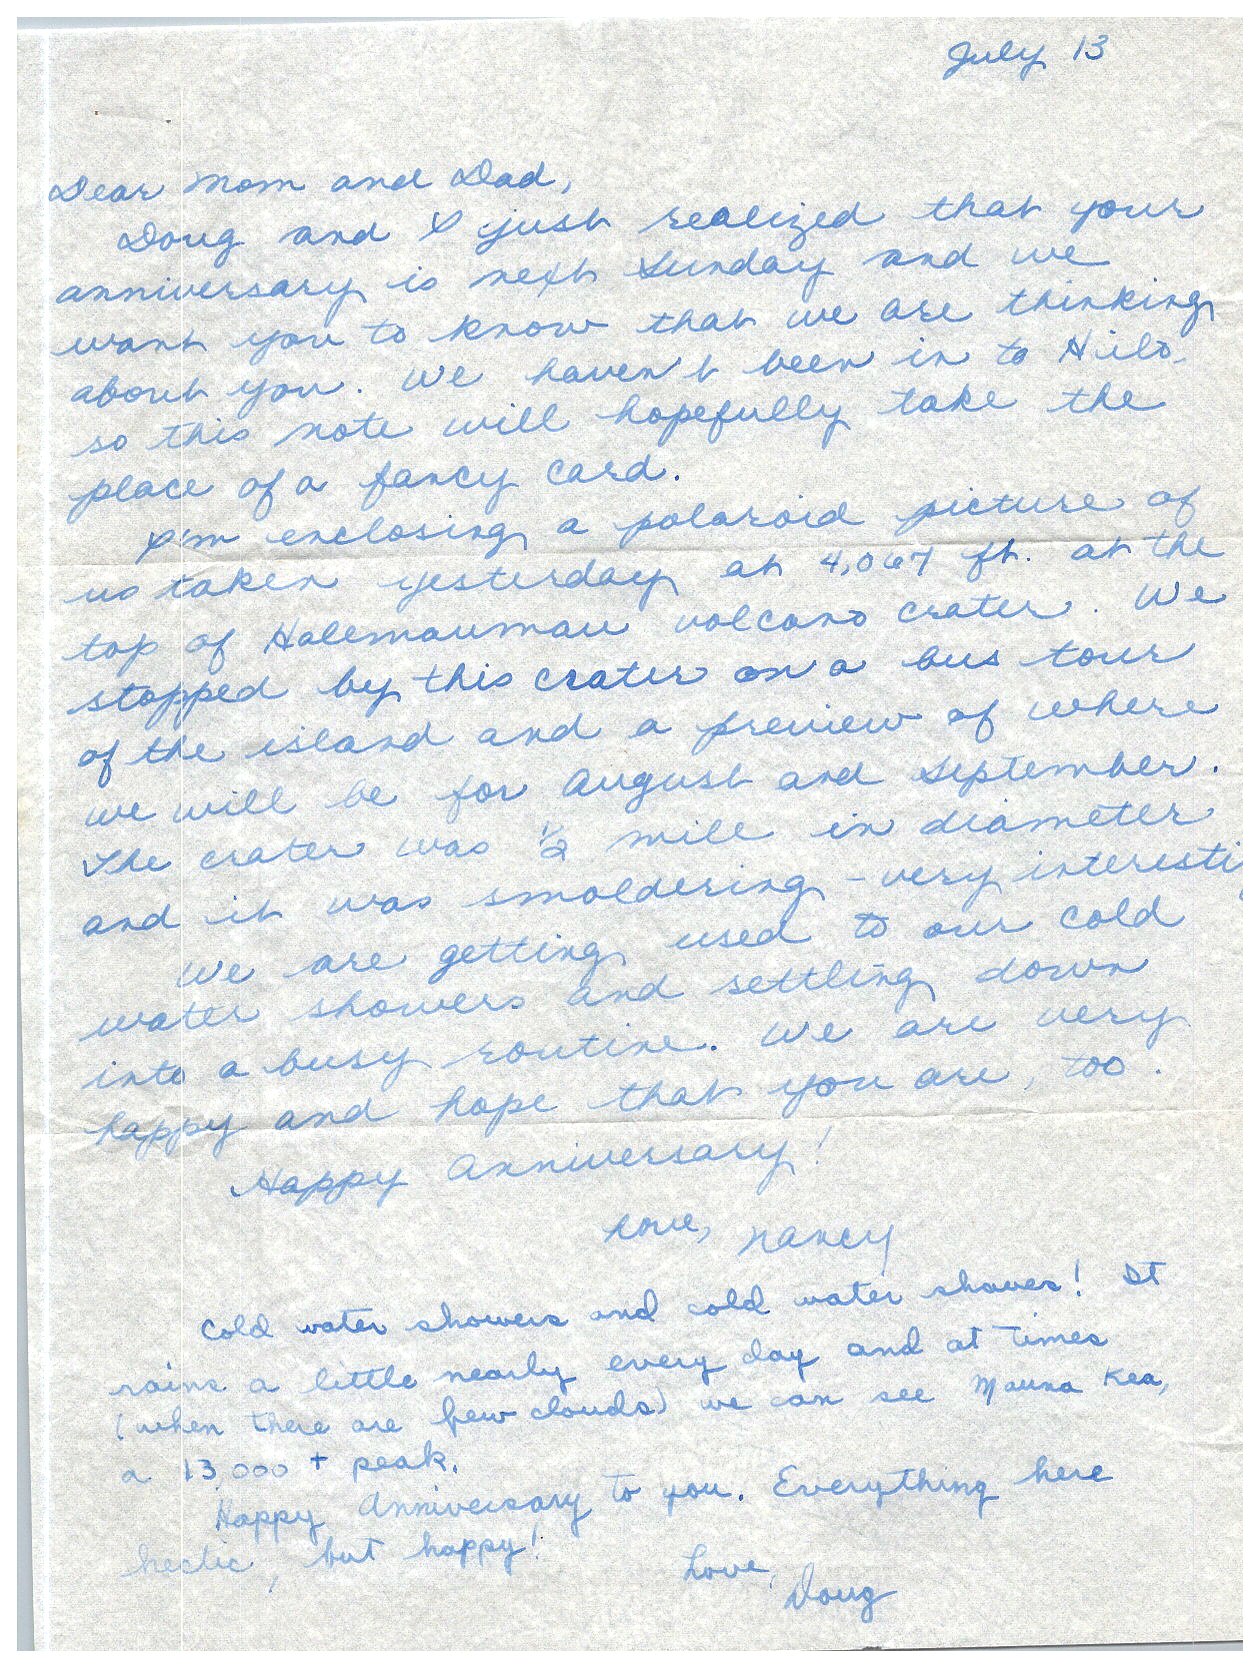 July 13
Dear Mom and Dad,
Doug and I just realized that your
anniversary is next Sunday and we
want you to know that we are thinking
about you. We haven't been in to Hilo
so this note will hopefully take the
place of a fancy card.
I'm enclosing a polaroid picture of
us taken yesterday at 4,067 ft. at the
top of Halemaumau volcano crater. We
stopped by this crater on a bus tour
of the island and a preview of where
we will be for August and September.
The crater was ½ mile in diameter
and it was smoldering - very interesti
We are getting used to our cold
water showers and settling down
into a busy routine. We are very
happy and hope that you are, too.
Happy Anniversary!
Love, Nancy
Cold water showers and cold water shaves! It
rains a little nearly every day and at times
(when there are few clouds) we can see Mauna Kea,
a 13,000 + peak.
Happy Anniversary to you. Everything here
hectic, but happy!
Love,
Doug